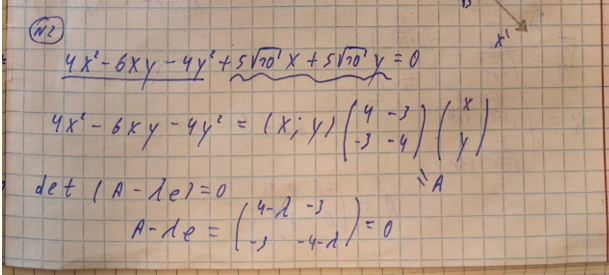 x'
№2
4x² - 6xy - 4y² + 5√10 x + 5√10 y = 0
4x² - 6xy - 4y² = (x; y) (4 -3 -3 -4) (x y)
= A
det (A - λe) = 0
A - λe = (4-λ -3 -3 -4-λ) = 0